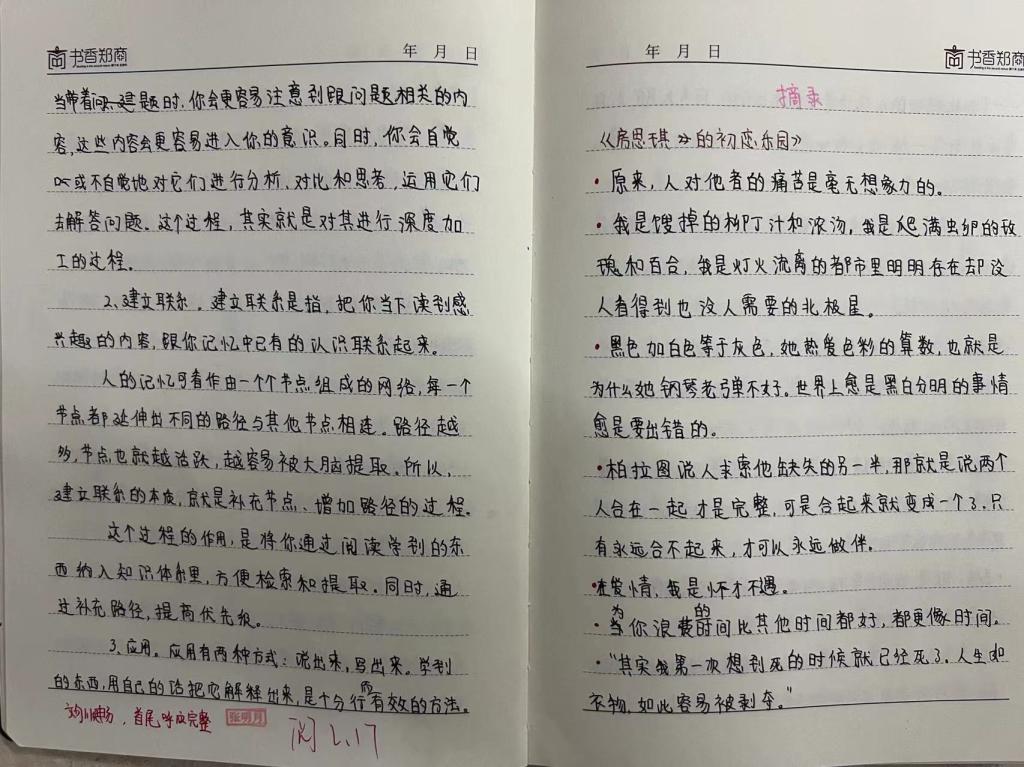 书香郑商
年 月 日
当带着问题时，你会更容易注意到跟问题相关的内
容，这些内容会更容易进入你的意识。同时，你会自觉
或不自觉地对它们进行分析、对比和思考，运用它们
去解答问题。这个过程，其实就是对其进行深度加
工的过程。
2、建立联系。建立联系是指，把你当下读到感
兴趣的内容，跟你记忆中已有的认识联系起来。
人的记忆可看作由一个个节点组成的网络，每一个
节点都延伸出不同的路径与其他节点相连。路径越
多，节点也就越活跃，越容易被大脑提取。所以，
建立联系的本质，就是补充节点、增加路径的过程。
这个过程的作用，是将你通过阅读学到的东
西纳入知识体系里，方便检索和提取。同时，通
过补充路径，提高优先级。
3、应用。应用有两种方式：说出来，写出来。学到
的东西，用自己的话把它解释出来，是个分行而有效的方法。
，首尾呼应完整
张明月
阅 2.17
年 月 日
书香郑商
摘录
《房思琪的初恋乐园》
·原来，人对他者的痛苦是毫无想象力的。
·我是馊掉的柳丁汁和浓汤，我是爬满虫卵的玫
瑰和百合，我是灯火流离的都市里明明存在却没
人看得到也没人需要的北极星。
·黑色加白色等于灰色，她热爱色彩的算数，也就是
为什么她钢琴老弹不好。世界上愈是黑白分明的事情
愈是要出错的。
·柏拉图说人求索他缺失的另一半，那就是说两个
人合在一起才是完整，可是合起来就变成一个了。只
有永远合不起来，才可以永远做伴。
·在爱情，我是怀才不遇。
·为你浪费的时间比其他时间都好，都更像时间。
·"其实我第一次想到死的时候就已经死了。人生如
衣物，如此容易被剥夺。"